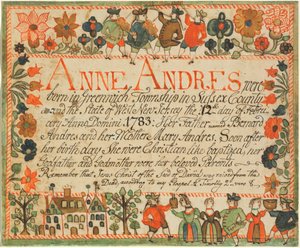 ANNE ANDRES were
born in Greenwich Township in Sussex County
and the State of West New Jersey the 12th day of
ary Anno Domini 1783. Her Father Bernard
Andres and her Mother Mary Andres, Soon after
her birth day She were Christian like baptised, her
Godfather and Godmother were her beloved Parents
Remember that Jesus Christ of the Seed of David, was raised from the
Dead, according to my Gospel 2 Timothy 2